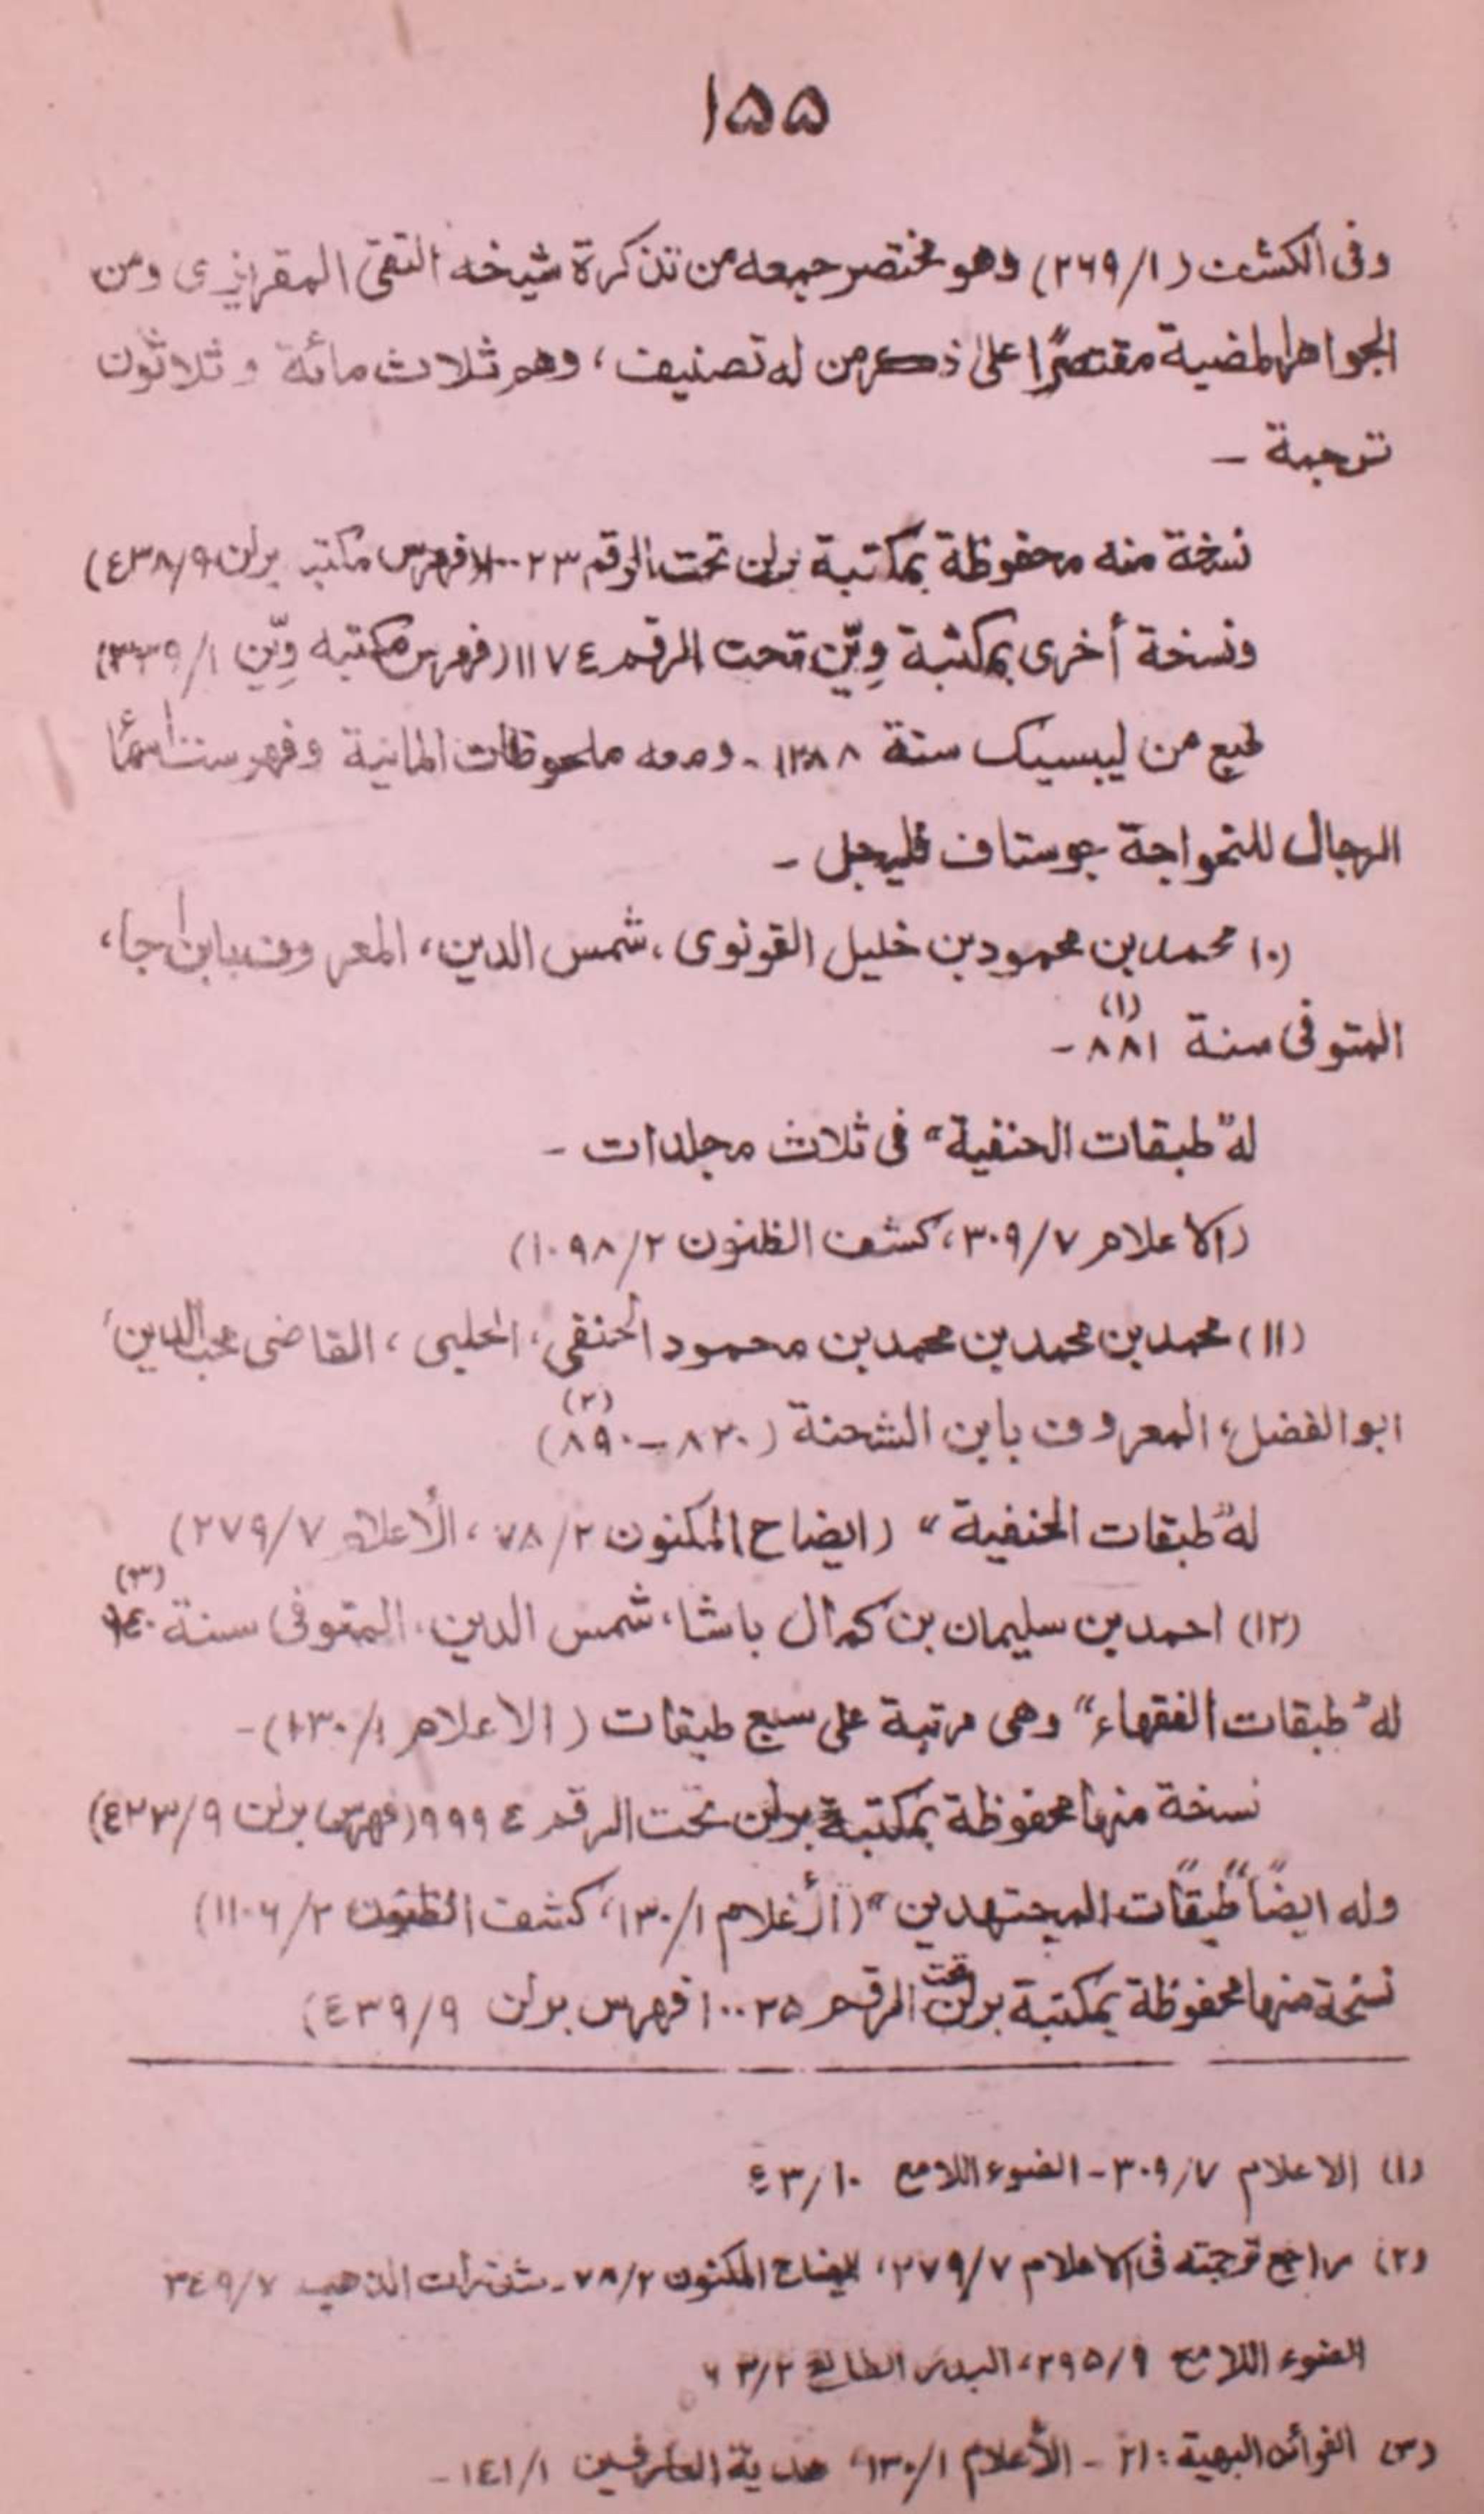 ۱۵۵
وفى الكشف (۲۶۹/۱) وهو مختصر جمعه من تذكرة شيخه التقى المقريزى ومن
الجواهر المضية مقتصرًا على ذكر من له تصنيف، وهم ثلاث مائة وثلاثون
ترجمة ـ
نسخة منه محفوظة بمكتبة برلن تحت الرقم ۱۰۰۲۳ (فهرس مكتبه برلن ٤۳۸/۹)
ونسخة أخرى بمكتبة وِيّن تحت الرقم ۱۱۷٤ (فهرس مكتبه وِيّن
طبع من ليبسيك سنة ـ ومعه ملحوظات المانية وفهرست اسماء
الرجال للخواجة جوستاف فليجل ـ
(۱۰) محمد بن محمود بن خليل القونوى، شمس الدين، المعروف بابن أجا،
المتوفى سنة ۸۸۱ (۱) ـ
له "طبقات الحنفية" فى ثلاث مجلدات ـ
(الاعلام ۳۰۹/۷، كشف الظنون ۱۰۹۸/۲)
(۱۱) محمد بن محمد بن محمد بن محمود الحنفى، الحلبى، القاضى محب الدين،
ابو الفضل، المعروف بابن الشحنة (۸۲۰ – ۸۹۰) (۲)
له "طبقات الحنفية" (ايضاح المكنون ۷۸/۲، الأعلام ۲۷۹/۷)
(۱۲) احمد بن سليمان بن كمال باشا، شمس الدين، المتوفى سنة ۹٤۰ (۳)
له "طبقات الفقهاء" وهى مرتبة على سبع طبقات (الاعلام ۱۳۰/۱) ـ
نسخة منها محفوظة بمكتبة برلن تحت الرقم ۹۹۹٤ (فهرس برلن ٤۲۳/۹)
وله ايضاً "طبقات المجتهدين" (الأعلام ۱۳۰/۱، كشف الظنون ۱۱۰۶/۲)
نسخة منها محفوظة بمكتبة برلن تحت الرقم ۱۰۰۲۵ فهرس برلن ٤۳۹/۹)
(۱) الاعلام ۳۰۹/۷ ـ الضوء اللامع ٤۳/۱۰
(۲) راجع ترجمته فى الاعلام ۲۷۹/۷، ايضاح المكنون ۷۸/۲ ـ شذرات الذهب ۳٤۹/۷
الضوء اللامع ۲۹۵/۹، البدر الطالع ۲۶۳/۲
(۳) الفوائد البهية: ۲۱ ـ الأعلام ۱۳۰/۱، هدية العارفين ۱٤۱/۱ ـ